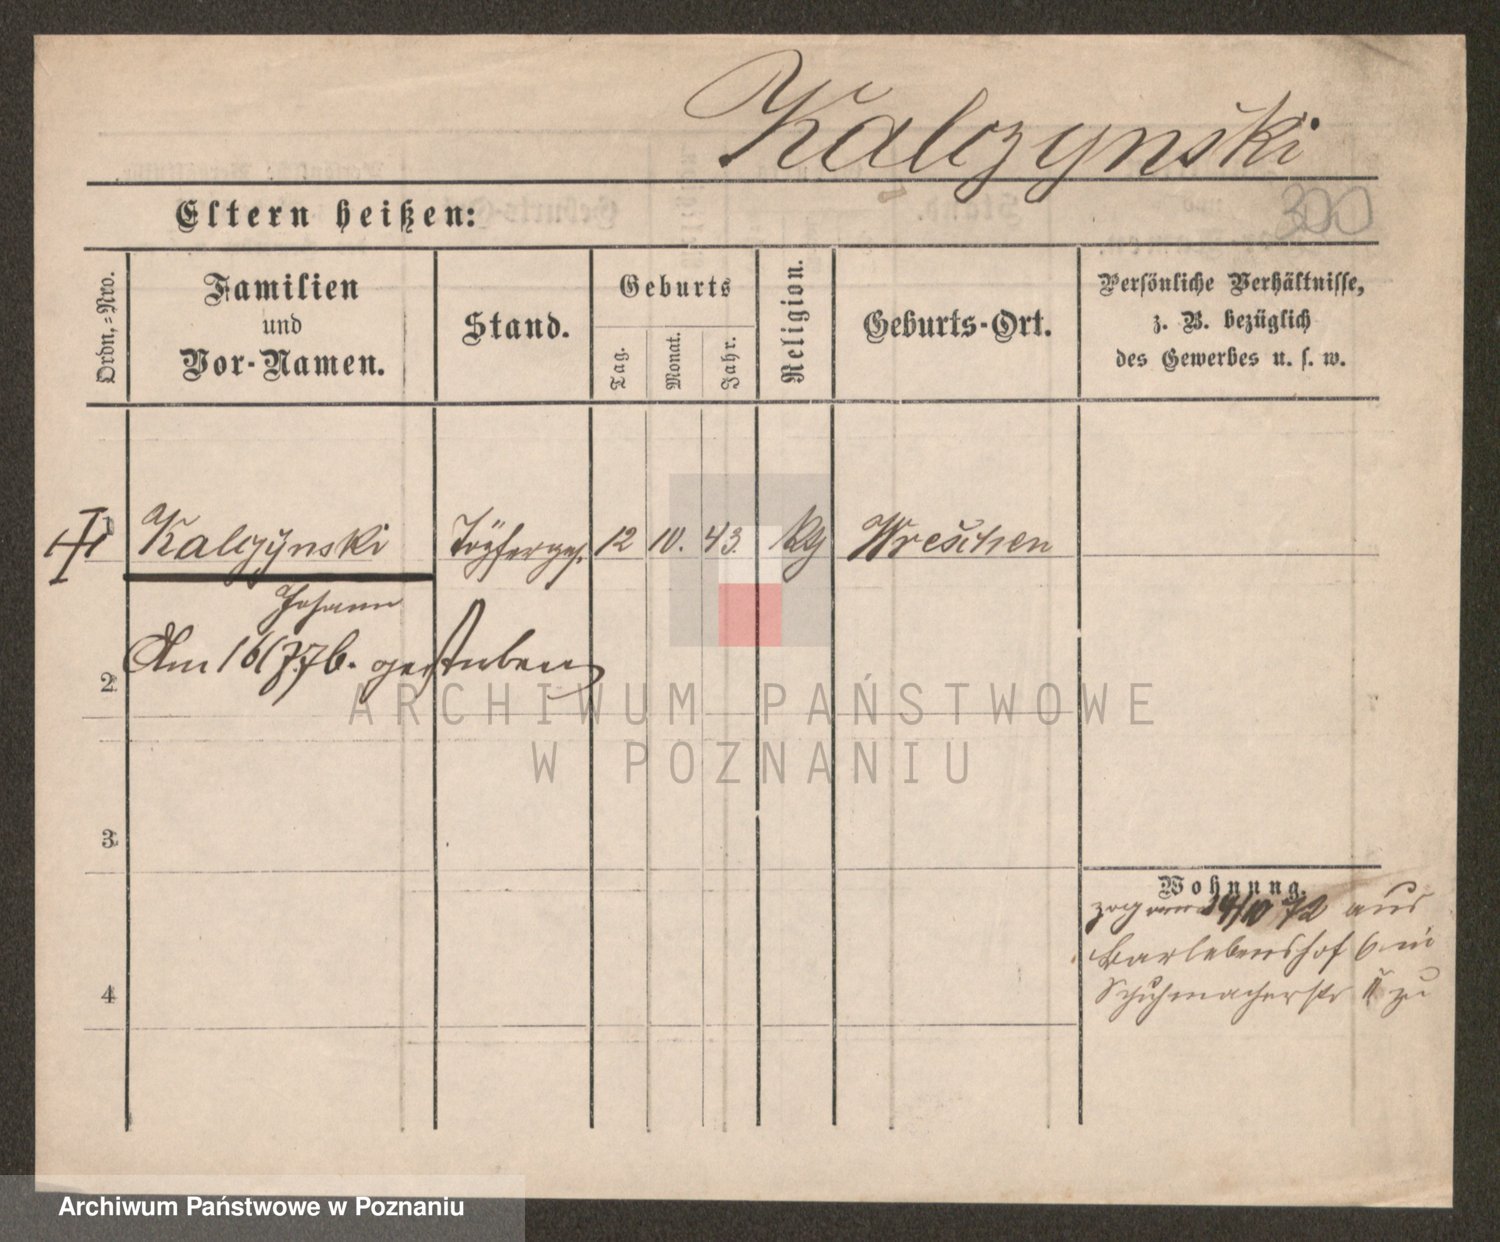 Kalczynski
300
Eltern heißen:
Ordn.-Nro.
Familien
und
Vor-Namen.
Stand.
Geburts
Tag.
Monat.
Jahr.
Religion.
Geburts-Ort.
Persönliche Verhältnisse,
z. B. bezüglich
des Gewerbes u. s. w.
1 Kalczynski Töpferges. 12 10. 43. Wreschen
Johann
2 Am 16/7 76. gestorben
3
4
Wohnung.
zog am 24/10 72 aus
Barlebenshof 6 in
Schuhmacherstr 11 zu
ARCHIWUM PAŃSTWOWE
W POZNANIU
Archiwum Państwowe w Poznaniu